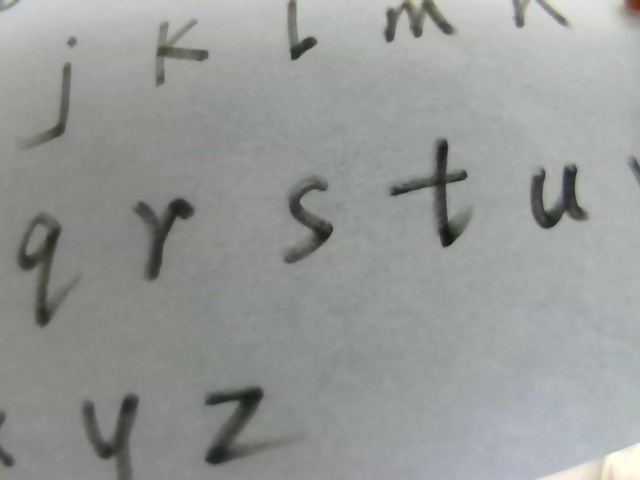 j k l m n
q r s t u
y z